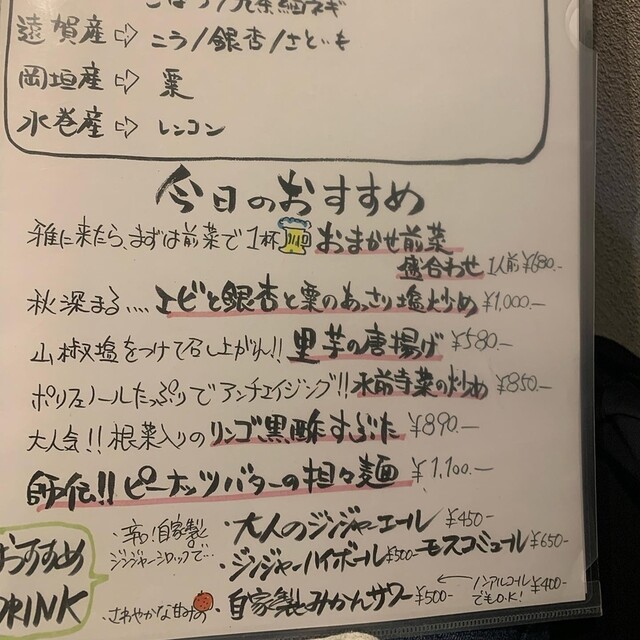 ごぼう/九条細ネギ
遠賀産⇨こう/銀杏/さといも
岡垣産⇨栗
水巻産⇨レンコン
今日のおすすめ
雅に来たら、まずは前菜で1杯 おまかせ前菜
盛合わせ 1人前¥680.-
秋深まる....エビと銀杏と栗のあっさり塩炒め ¥1,000-
山椒塩をつけて召し上がれ!! 里芋の唐揚げ ¥580.-
ポリフェノールたっぷりでアンチェイジング!! 水前寺菜の炒め ¥850-
大人気!! 根菜入りのリンゴ黒酢すぶた ¥890.-
師伝!! ピーナッツバターの担々麺 ¥1,100.-
おすすめ
DRINK
・辛口自家製
ジンジャーシロップで…
・大人のジンジャーエール ¥450-
・ジンジャーハイボール ¥500- モスコミュール ¥650-
さわやかな甘みの・自家製みかんサワー ¥500- ← ノンアルコール ¥400-
でもO.K!